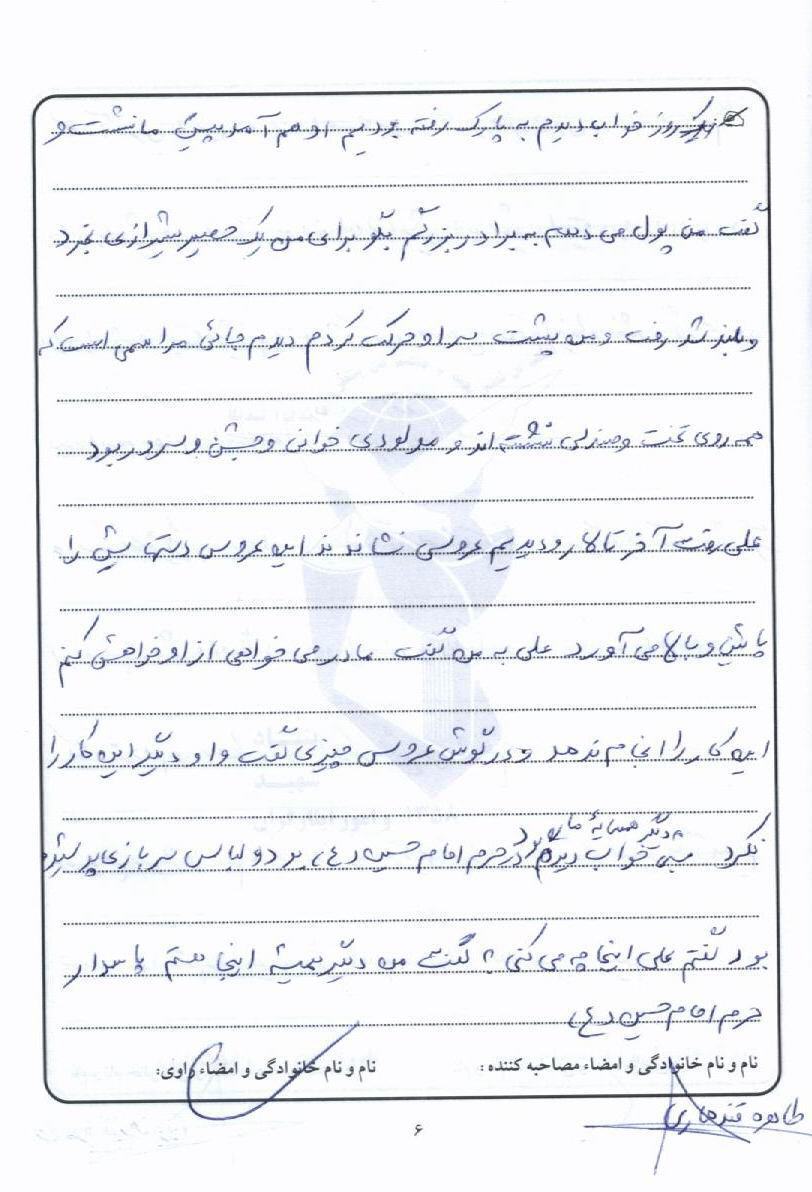 یک روز خواب دیدم به پارک رفته بودیم او هم آمد پیش ما نشست و
گفت من پول می دهم به برادر بزرگم بگو برای من یک حصیر شیرازی بخرد
و بلند شد رفت و من پشت سر او حرکت کردم دیدم جائی مراسمی است که
همه روی تخت و صندلی نشسته اند و مولودی خوانی و جشن و سرور بود
علی رفت آخر تالار و دیدیم عروسی نشاندند این عروس دستهایش را
پائین و بالا می آورد علی به من گفت مادر می خواهی از او خواهش کنم
این کار را انجام ندهد و در گوش عروس چیزی گفت و او دیگر این کار را
دیگر همسایۀ ما بود
نکرد شبی خواب دیدم در حرم امام حسین (ع) بود و لباس سربازی پوشیده
بود گفتم علی اینجا چه می کنی؟ گفت من دیگر همیشه اینجا هستم پاسدار
حرم امام حسین (ع)
نام و نام خانوادگی و امضاء مصاحبه کننده : نام و نام خانوادگی و امضاء راوی:
طاهره قندهاری
۶